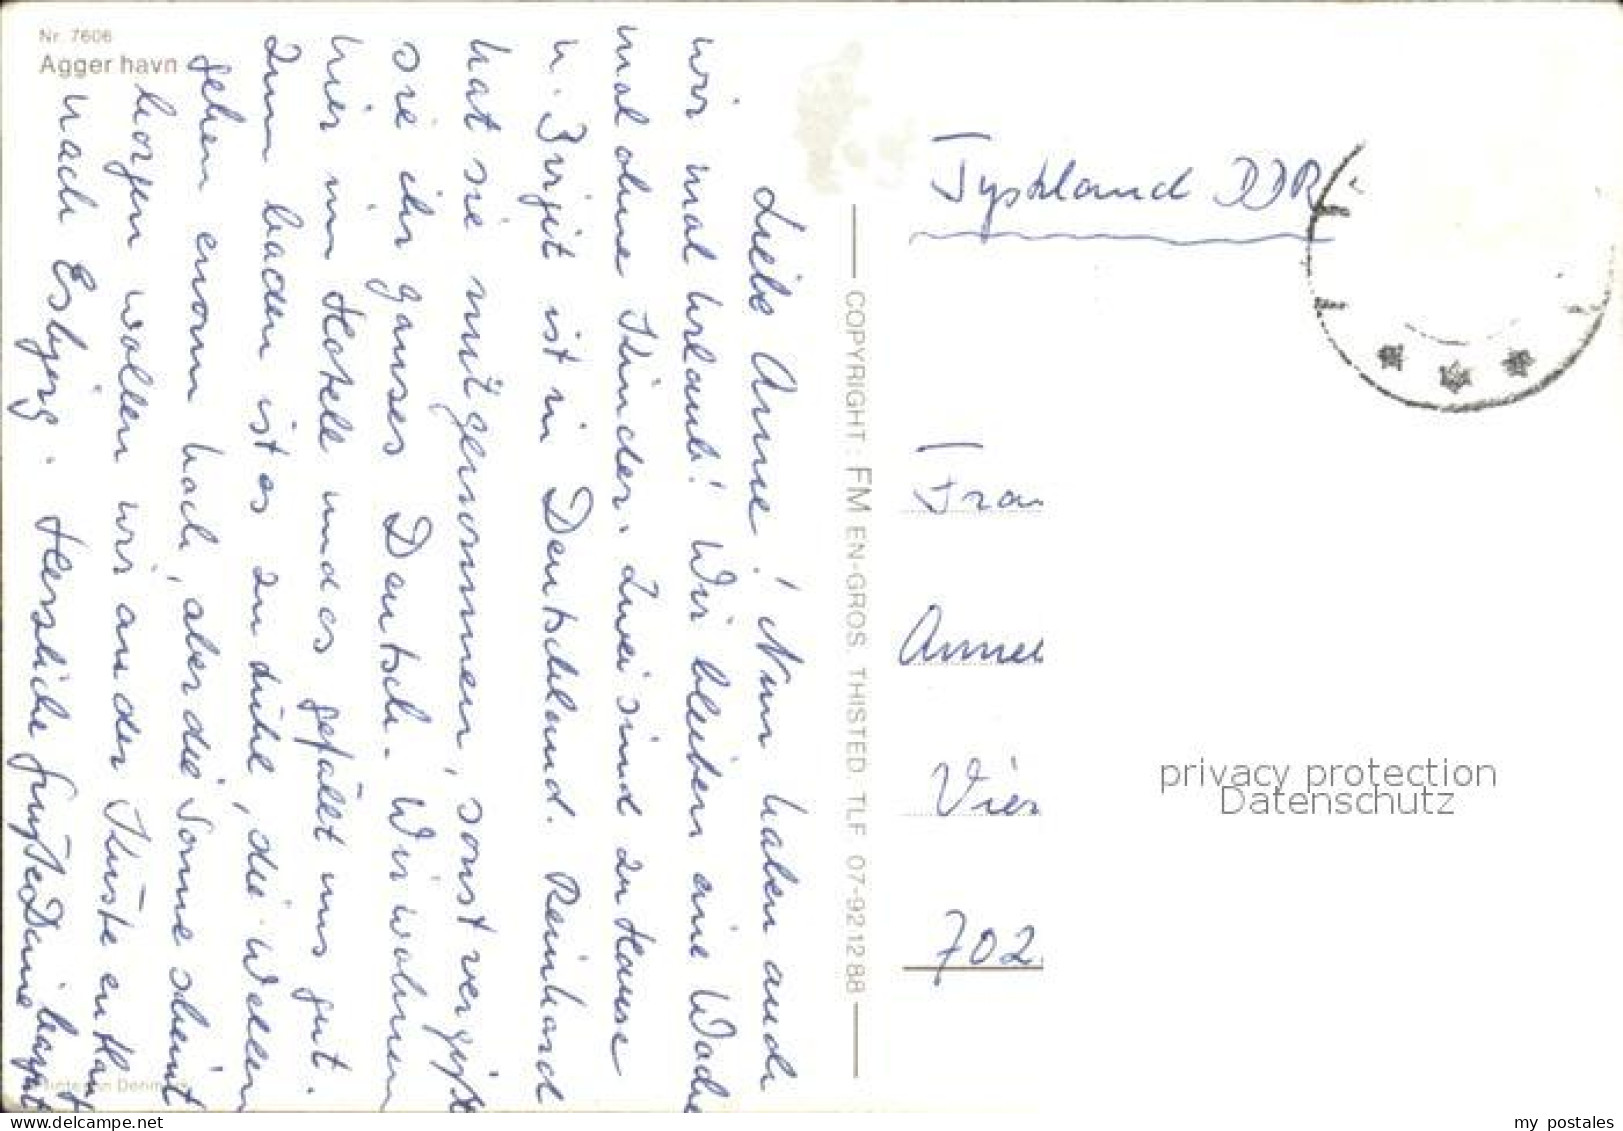 Nr. 7606
Agger havn
Liebe Anne! Nun haben auch
wir mal Urlaub! Wir bleiben eine Woche
mal ohne Kinder. Zwei sind zu Hause
u. Birgit ist in Deutschland. Reinhard
hat sie mitgenommen, sonst vergißt
sie ihr ganzes Deutsch. Wir wohnen
hier im Hotell und es gefällt uns gut.
Zum baden ist es zu kühl, die Wellen
gehen enorm hoch, aber die Sonne scheint
Morgen wollen wir an der Küste entlang
nach Esbjerg. Herzliche Grüße Deine
COPYRIGHT: FM EN-GROS THISTED TLF 07-92 12 88
Tyskland DDR
Frau
Annel
Vier
702
privacy protection
Datenschutz
my postales